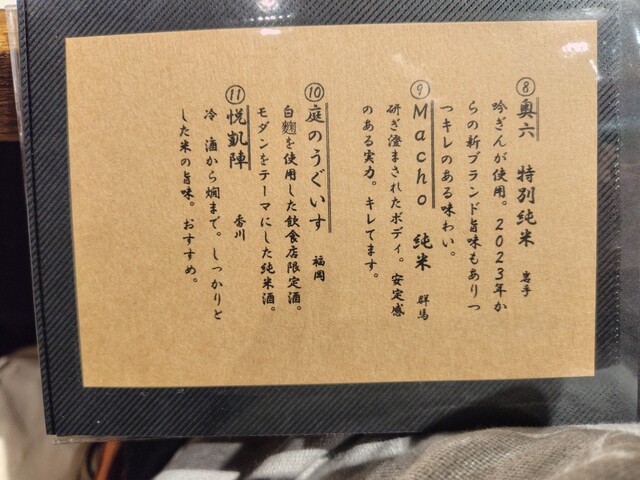 ⑧奥六 特別純米 岩手
吟ぎんが使用。2023年か
らの新ブランド旨味もありつ
つキレのある味わい。
⑨Macho 純米 群馬
研ぎ澄まされたボディ。安定感
のある実力。キレてます。
⑩庭のうぐいす 福岡
白麹を使用した飲食店限定酒。
モダンをテーマにした純米酒。
⑪悦凱陣 香川
冷酒から燗まで。しっかりと
した米の旨味。おすすめ。